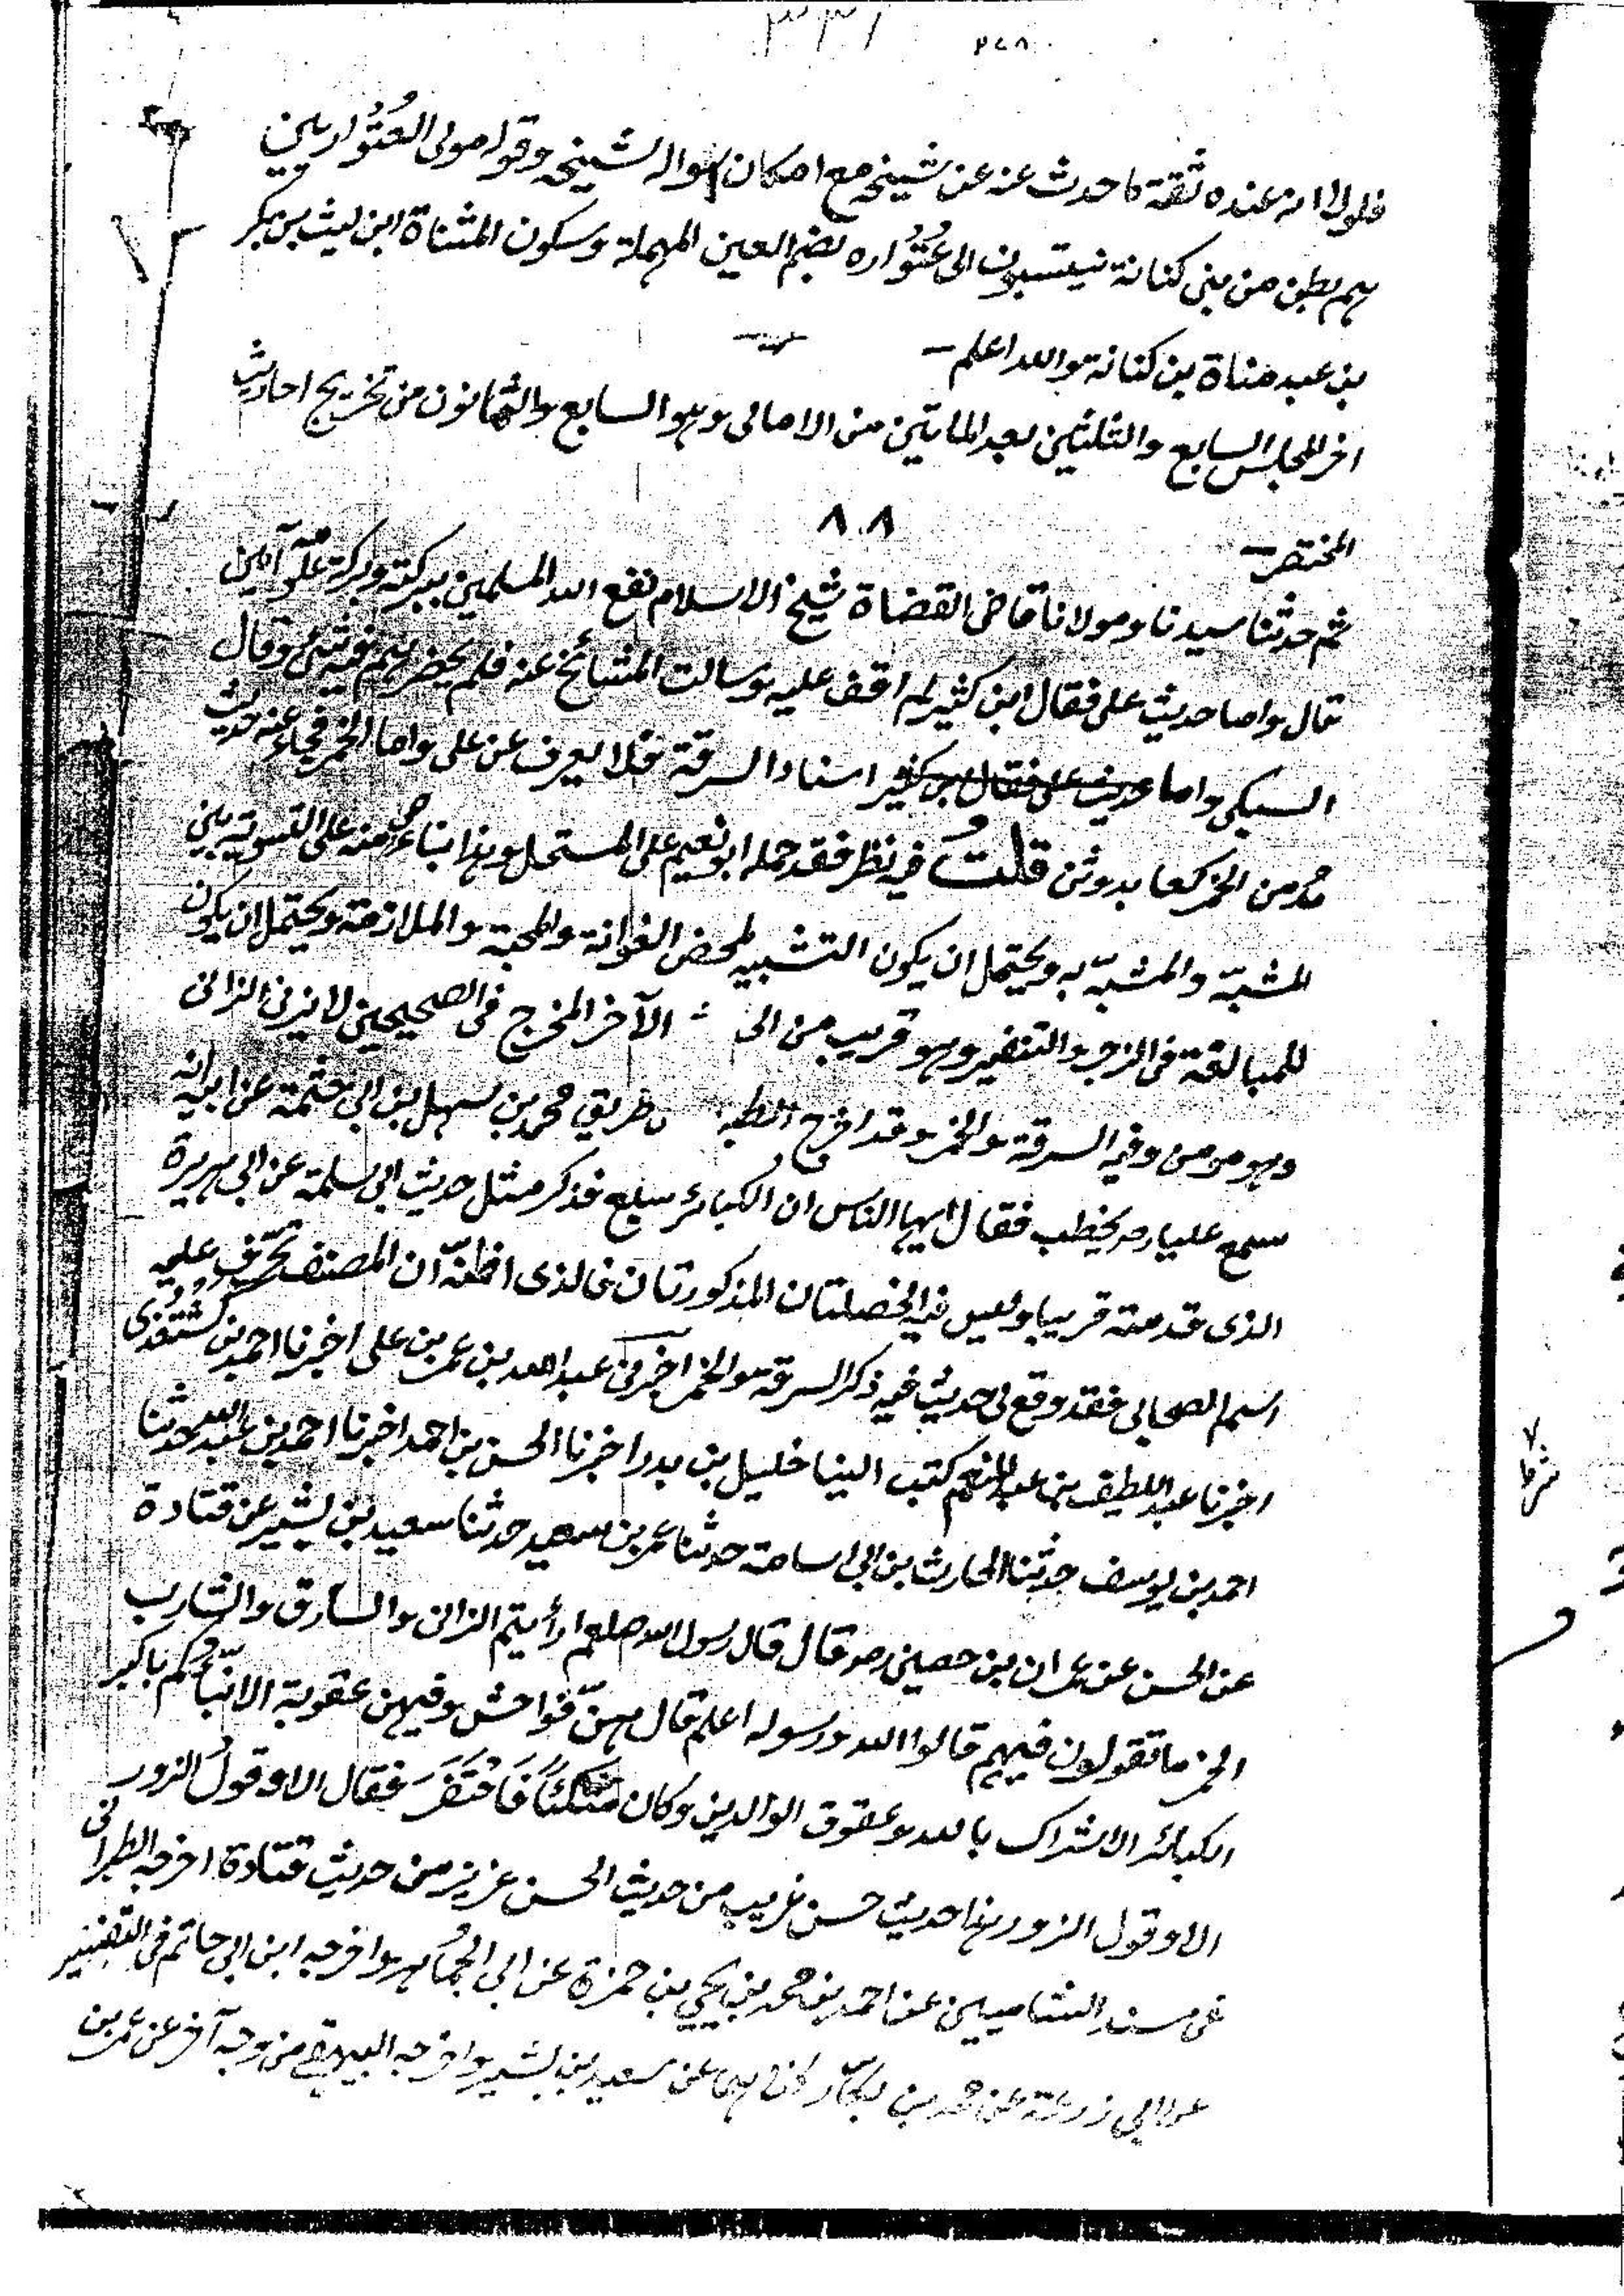 ٣٣١ ٢٧٨
فلولا انه عنده ثقة ما حدث عنه عن شيخه مع امكان سواله لشيخه وقوله مولى العُتْوُاريين
هم بطن من بني كنانة ينتسبون الى عُتْوُاره بضم العين المهملة وسكون المثناة ابن ليث بن بكر
بن عبد مناة بن كنانة والله اعلم
اخر المجلس السابع والثلثين بعد المايتين من الامالى وهو السابع والثمانون من تخريج احاديث
المختصر ٨٠٨
ثم حدثنا سيدنا ومولانا قاضى القضاة شيخ الاسلام نفع الله المسلمين ببركته وبركة علومه آمين
قال واما حديث على فقال ابن كثير لم اقف عليه وسالت المشائخ عنه فلم يحضرهم فيه شئ وقال
السبكى واما حديث على فقال ابن كثير اسناد السرقة فلا يعرف عن على واما الخمر فجاء عنه حديث
مدمن الخمر كعابد وثن قلتُ فيه نظر فقد حمله ابو نعيم على المستحل وهذا بناء منه على التسوية بين
المشبّه والمشبّه به ويحتمل ان يكون التشبيه لمحض والمحبة والملازمة ويحتمل ان يكون
للمبالغة فى الزجر والتنفير وهو قريب من الآخر المخرج فى الصحيحين لا يزنى الزانى
وهو مومن وفيه السرقة والخمر وقد اخرج طريق محمد بن سهل بن ابى حثمة عن ابيه انه
سمع عليا رضـ يخطب فقال ايها الناس ان الكبائر سبع فذكر مثل حديث ابى سلمة عن ابى هريرة
الذى قدمته قريبا وليس فيه الخصلتان المذكورتان فالذى اظنّه ان المصنف تحرّف عليه
اسم الصحابى فقد وقع لى حديث فيه ذكر السرقة والخمر اخبرنى عبد الله بن عمر بن على اخبرنا احمد بن كُشْتُغْدى
اخبرنا عبد اللطيف بن عبد المنعم كتب الينا خليل بن بدر اخبرنا الحسن بن احمد اخبرنا احمد بن عبد الله حدثنا
احمد بن يوسف حدثنا الحارث بن ابى اسامة حدثنا عمر بن سعيد حدثنا سعيد بن بشير عن قتادة
عن الحسن عن عمران بن حصين رضـ قال قال رسول الله صلعم ارأيتم الزانى والسارق والشارب
الخمر ما تقولون فيهم قالوا الله ورسوله اعلم قال هنّ فواحش وفيهن عقوبة الا انبّأُكم باكبر
الكبائر الاشراك بالله وعقوق الوالدين وكان متكئًا فَاحْتَفَزَ فقال الا وقول الزور
الا وقول الزور هذا حديث حسن غريب من حديث الحسن عزيز من حديث قتادة اخرجه الطبرانى
فى مسند الشاميين عن احمد بن محمد بن يحيى بن حمزة عن ابى الجُماهر واخرجه ابن ابى حاتم فى التفسير
عن ابى زرعة عن محمد بن بكّار كلاهما عن سعيد بن بشير واخرجه البيهقى من وجه آخر عن عمر بن